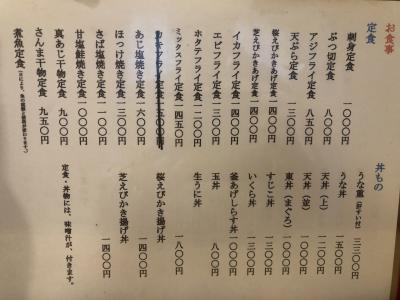 お食事
定食
刺身定食 一〇〇〇円
ぶつ切定食 八〇〇円
アジフライ定食 八五〇円
天ぷら定食 一三〇〇円
桜えびかきあげ定食 一四〇〇円
芝えびかきあげ定食 一四〇〇円
イカフライ定食 一四〇〇円
エビフライ定食 一三〇〇円
ホタテフライ定食 一二〇〇円
ミックスフライ定食 一四五〇円
カキフライ定食 一五〇〇円
あじ塩焼き定食 一六〇〇円
ほっけ焼き定食 一三〇〇円
さば塩焼き定食 一一〇〇円
甘塩鮭焼き定食 一〇〇〇円
真あじ干物定食 九〇〇円
さんま干物定食 九五〇円
煮魚定食
丼もの
うな重(肝すい付) 三三〇〇円
うな丼 一五〇〇円
天丼(上) 一二〇〇円
天丼(並) 一〇〇〇円
東丼(まぐろ) 一〇〇〇円
すじこ丼 一三〇〇円
いくら丼 一三〇〇円
釜あげしらす丼 一〇〇〇円
玉丼 八〇〇円
生うに丼 一八〇〇円
桜えびかき揚げ丼 一四〇〇円
芝えびかき揚げ丼 一四〇〇円
定食・丼物には、味噌汁が、付きます。